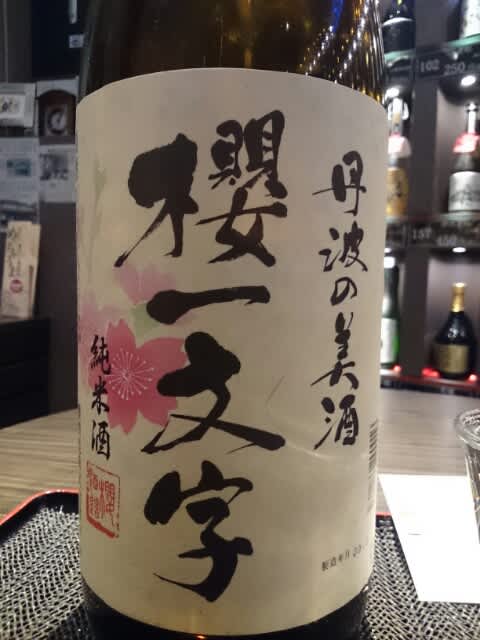 丹波の美酒
櫻一文字
純米酒
製造年月 20
102 250
157